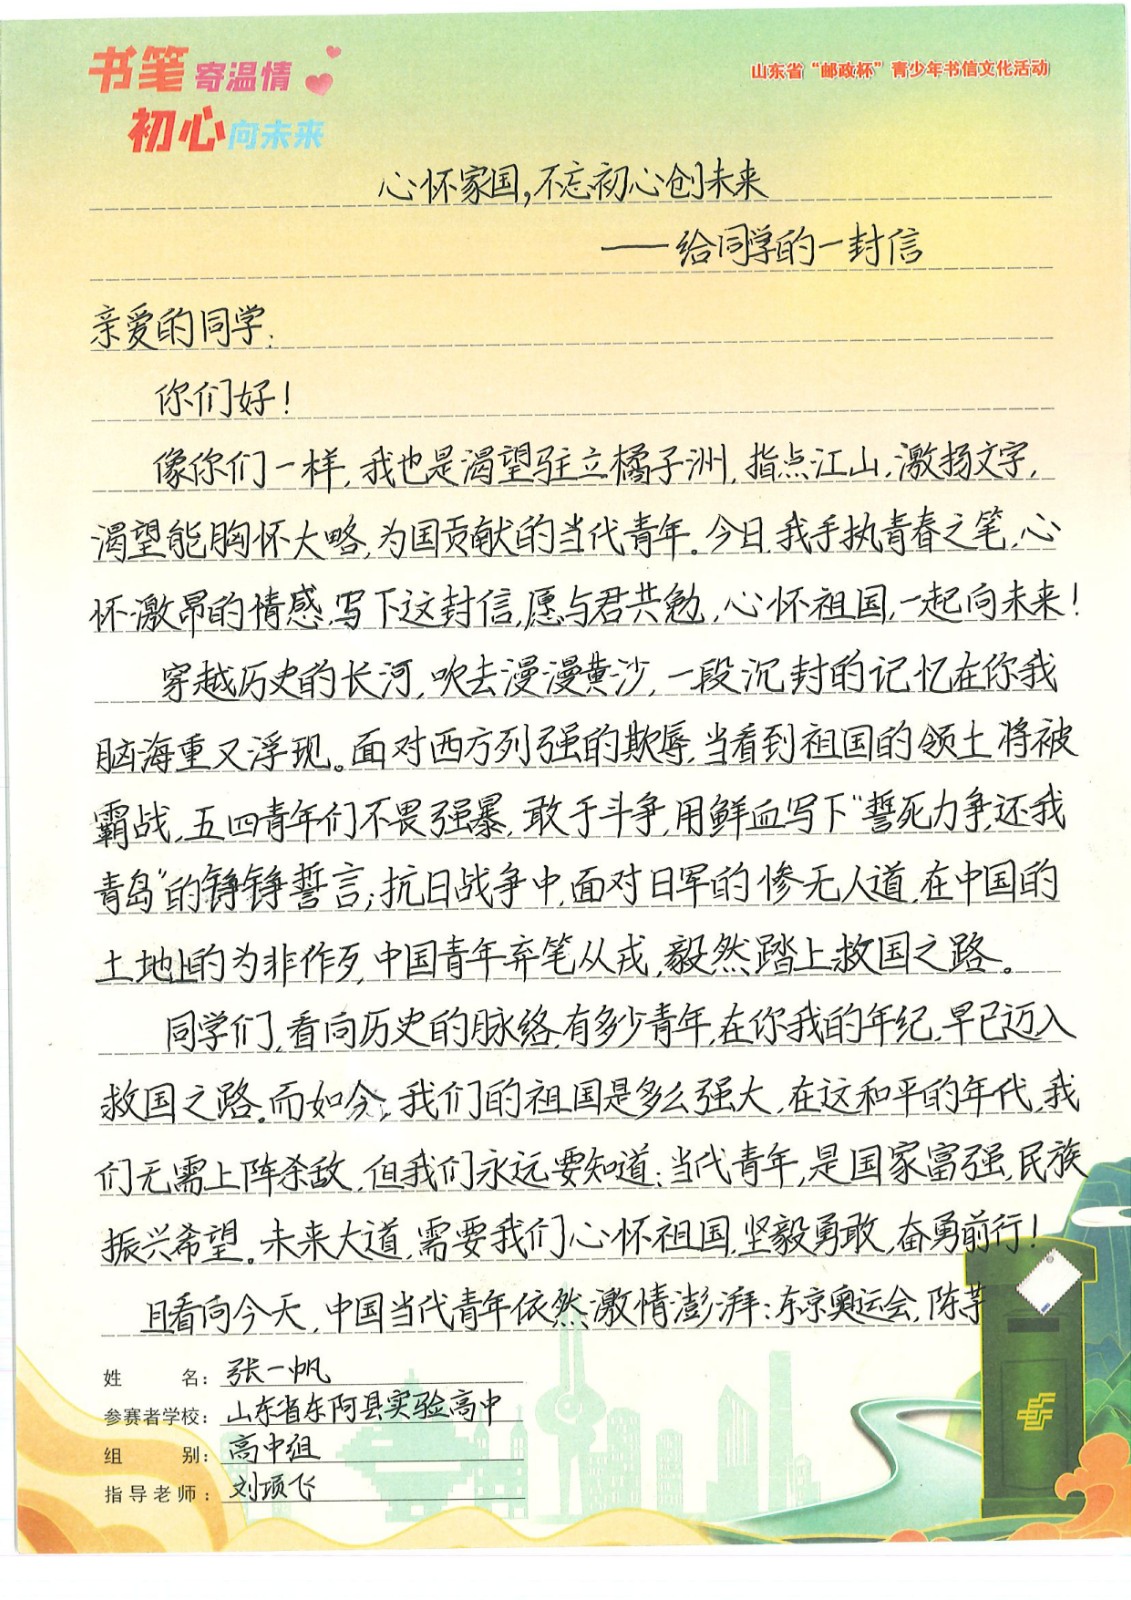 书笔寄温情
初心向未来
山东省“邮政杯”青少年书信文化活动
心怀家国,不忘初心创未来
——给同学的一封信
亲爱的同学:
你们好!
像你们一样,我也是渴望驻立橘子洲,指点江山,激扬文字,
渴望能胸怀大略,为国贡献的当代青年。今日,我手执青春之笔,心
怀激昂的情感,写下这封信,愿与君共勉,心怀祖国,一起向未来!
穿越历史的长河,吹去漫漫黄沙,一段沉封的记忆在你我
脑海重又浮现。面对西方列强的欺辱,当看到祖国的领土将被
霸战,五四青年们不畏强暴,敢于斗争,用鲜血写下“誓死力争,还我
青岛”的铮铮誓言;抗日战争中,面对日军的惨无人道,在中国的
土地上的为非作歹,中国青年弃笔从戎,毅然踏上救国之路。
同学们,看向历史的脉络,有多少青年,在你我的年纪,早已迈入
救国之路。而如今,我们的祖国是多么强大,在这和平的年代,我
们无需上阵杀敌,但我们永远要知道:当代青年,是国家富强,民族
振兴希望。未来大道,需要我们心怀祖国,坚毅勇敢,奋勇前行!
且看向今天,中国当代青年依然激情澎湃:东京奥运会,陈芋
姓名:张一帆
参赛者学校:山东省东阿县实验高中
组别:高中组
指导老师:刘项飞